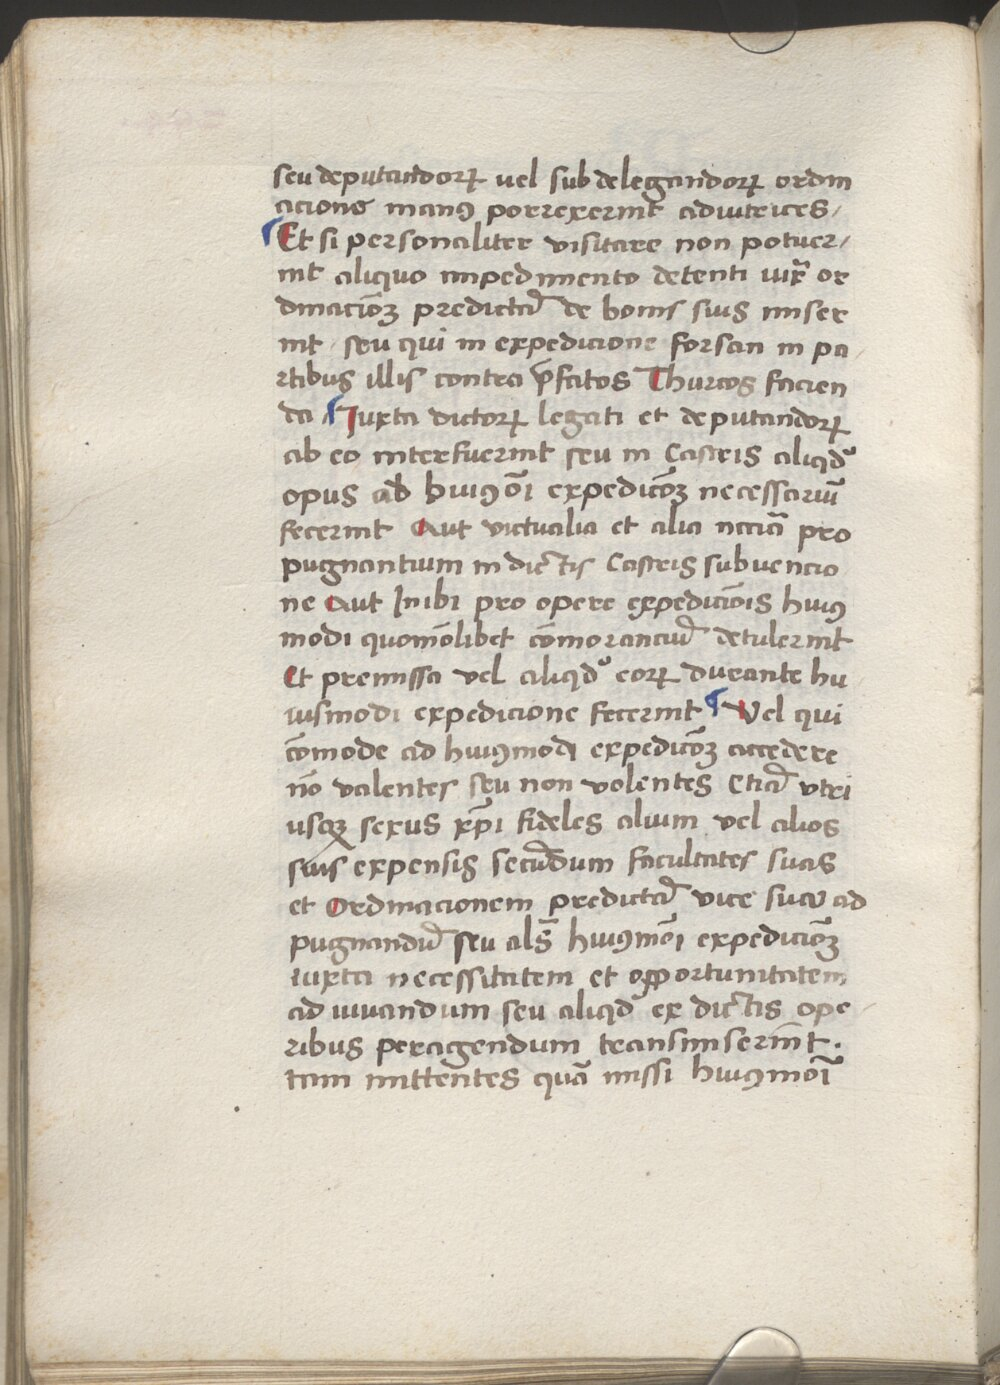 seu deputandoꝝ uel sub delegandoꝝ ordin
acione manꝰ porrexerint adiutrices /
¶ Et si personaliter visitare non potuer/
int aliquo impedimento detenti iux̄ or
dinacōeꝫ predictā de bonis suis miser
int / seu qui in expedicione forsan in pa
rtibus illis contra p̄fatos Thurcos facien
da / ¶ Iuxta dictoꝝ legati et deputandoꝝ
ab eo interfuerint seu in Castris aliqdͦ
opus ad huiꝰōi expedicōꝫ necessariū
fecerint Aut victualia et alia nccīa pro
pugnantium in dictis Castris subuencio
ne Aut Inibi pro opere expedicōis huiꝰ
modi quomōlibet cōmoranciū detulerint
Et premissa vel aliqdͦ eoꝝ durante hu
iusmodi expedicione fecerint ¶ Vel qui
cōmode ad huiꝰmodi expedicōꝫ accedere
nō valentes seu non volentes Etiā vtri
usqꝫ sexus xp̄i fideles alium vel alios
suis expensis secūdum facultates suas
et Ordinacionem predictā vice sua ad
pugnandū seu als̄ huiꝰmōi expedicōꝫ
iuxta necessitatem et opportunitatem
ad iuuandum seu aliqdͦ ex dictis ope /
ribus peragendum transmiserin̄t .
tam mittentes quā missi huiꝰmoī